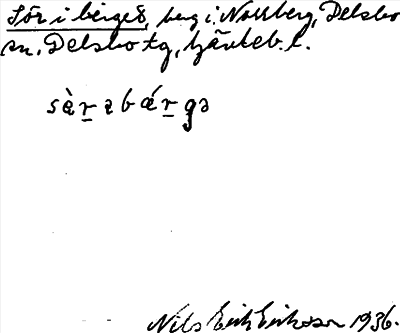 Sör i berget, berg i Norrberg, Delsbo
sn. Delsbo tg, Gävleb. l.
sὰr̲ a bǽr̲ gə
Nils Erik Eriksson 1936.